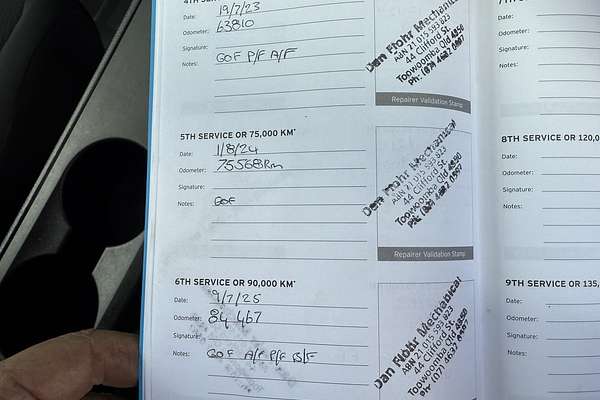 4TH SERVICE OR
Date: 19/7/23
Odometer: 63810
Signature:
Notes: GOF P/F A/F
Dan Mohr Mechanical
ABN 21 015 593 823
44 Clifford St
Toowoomba Qld 4350
Repairer Validation Stamp
5TH SERVICE OR 75,000 KM*
Date: 1/8/24
Odometer: 75568Km
Signature:
Notes: GOF
Dan Mohr Mechanical
ABN 21 015 593 823
44 Clifford St
Toowoomba Qld 4350
Repairer Validation Stamp
6TH SERVICE OR 90,000 KM*
Date: 9/7/25
Odometer: 84 467
Signature:
Notes: GOF A/F P/F B/F
Dan Mohr Mechanical
ABN 21 015 593 823
44 Clifford St
Toowoomba Qld 4350
Date:
Odometer:
Signature:
Notes:
8TH SERVICE OR 120,0
Date:
Odometer:
Signature:
Notes:
9TH SERVICE OR 135,
Date:
Odometer:
Signature:
Notes: